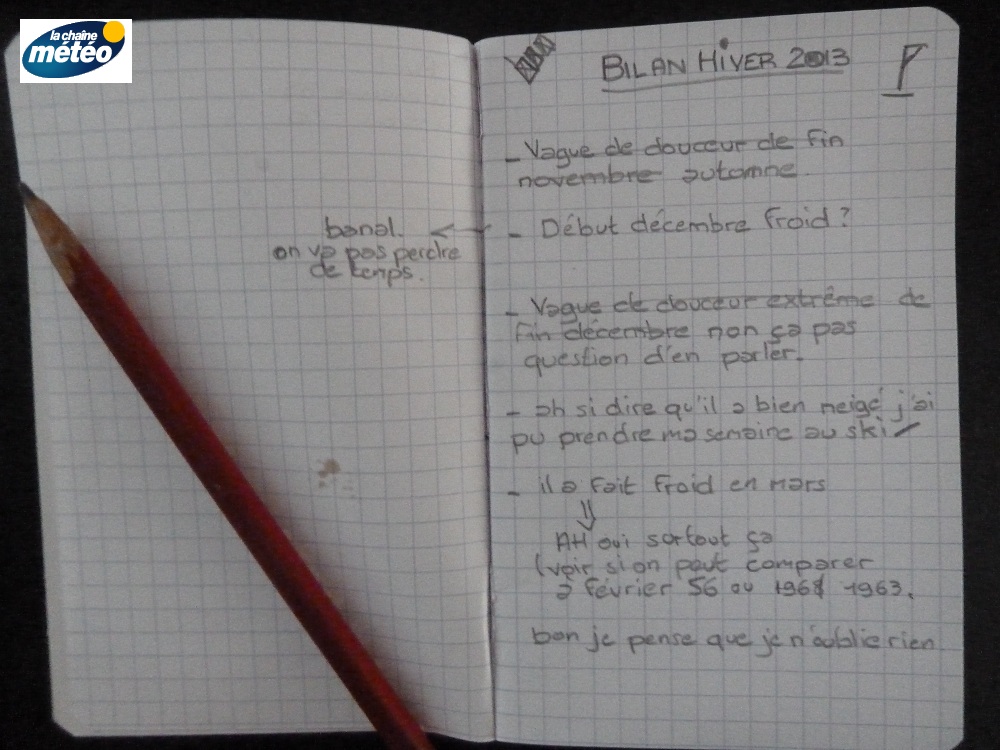 la chaîne
météo
BILAN HIVER 2013
- Vague de douceur de fin
novembre automne.
- Début décembre froid ?
banal.
on va pas perdre
de temps.
- Vague de douceur extrême de
fin décembre non ça pas
question d'en parler.
- ah si dire qu'il a bien neigé j'ai
pu prendre ma semaine au ski
- il a fait froid en mars
⇓
AH oui surtout ça
(voir si on peut comparer
à février 56 ou 1963.
bon je pense que je n'oublie rien